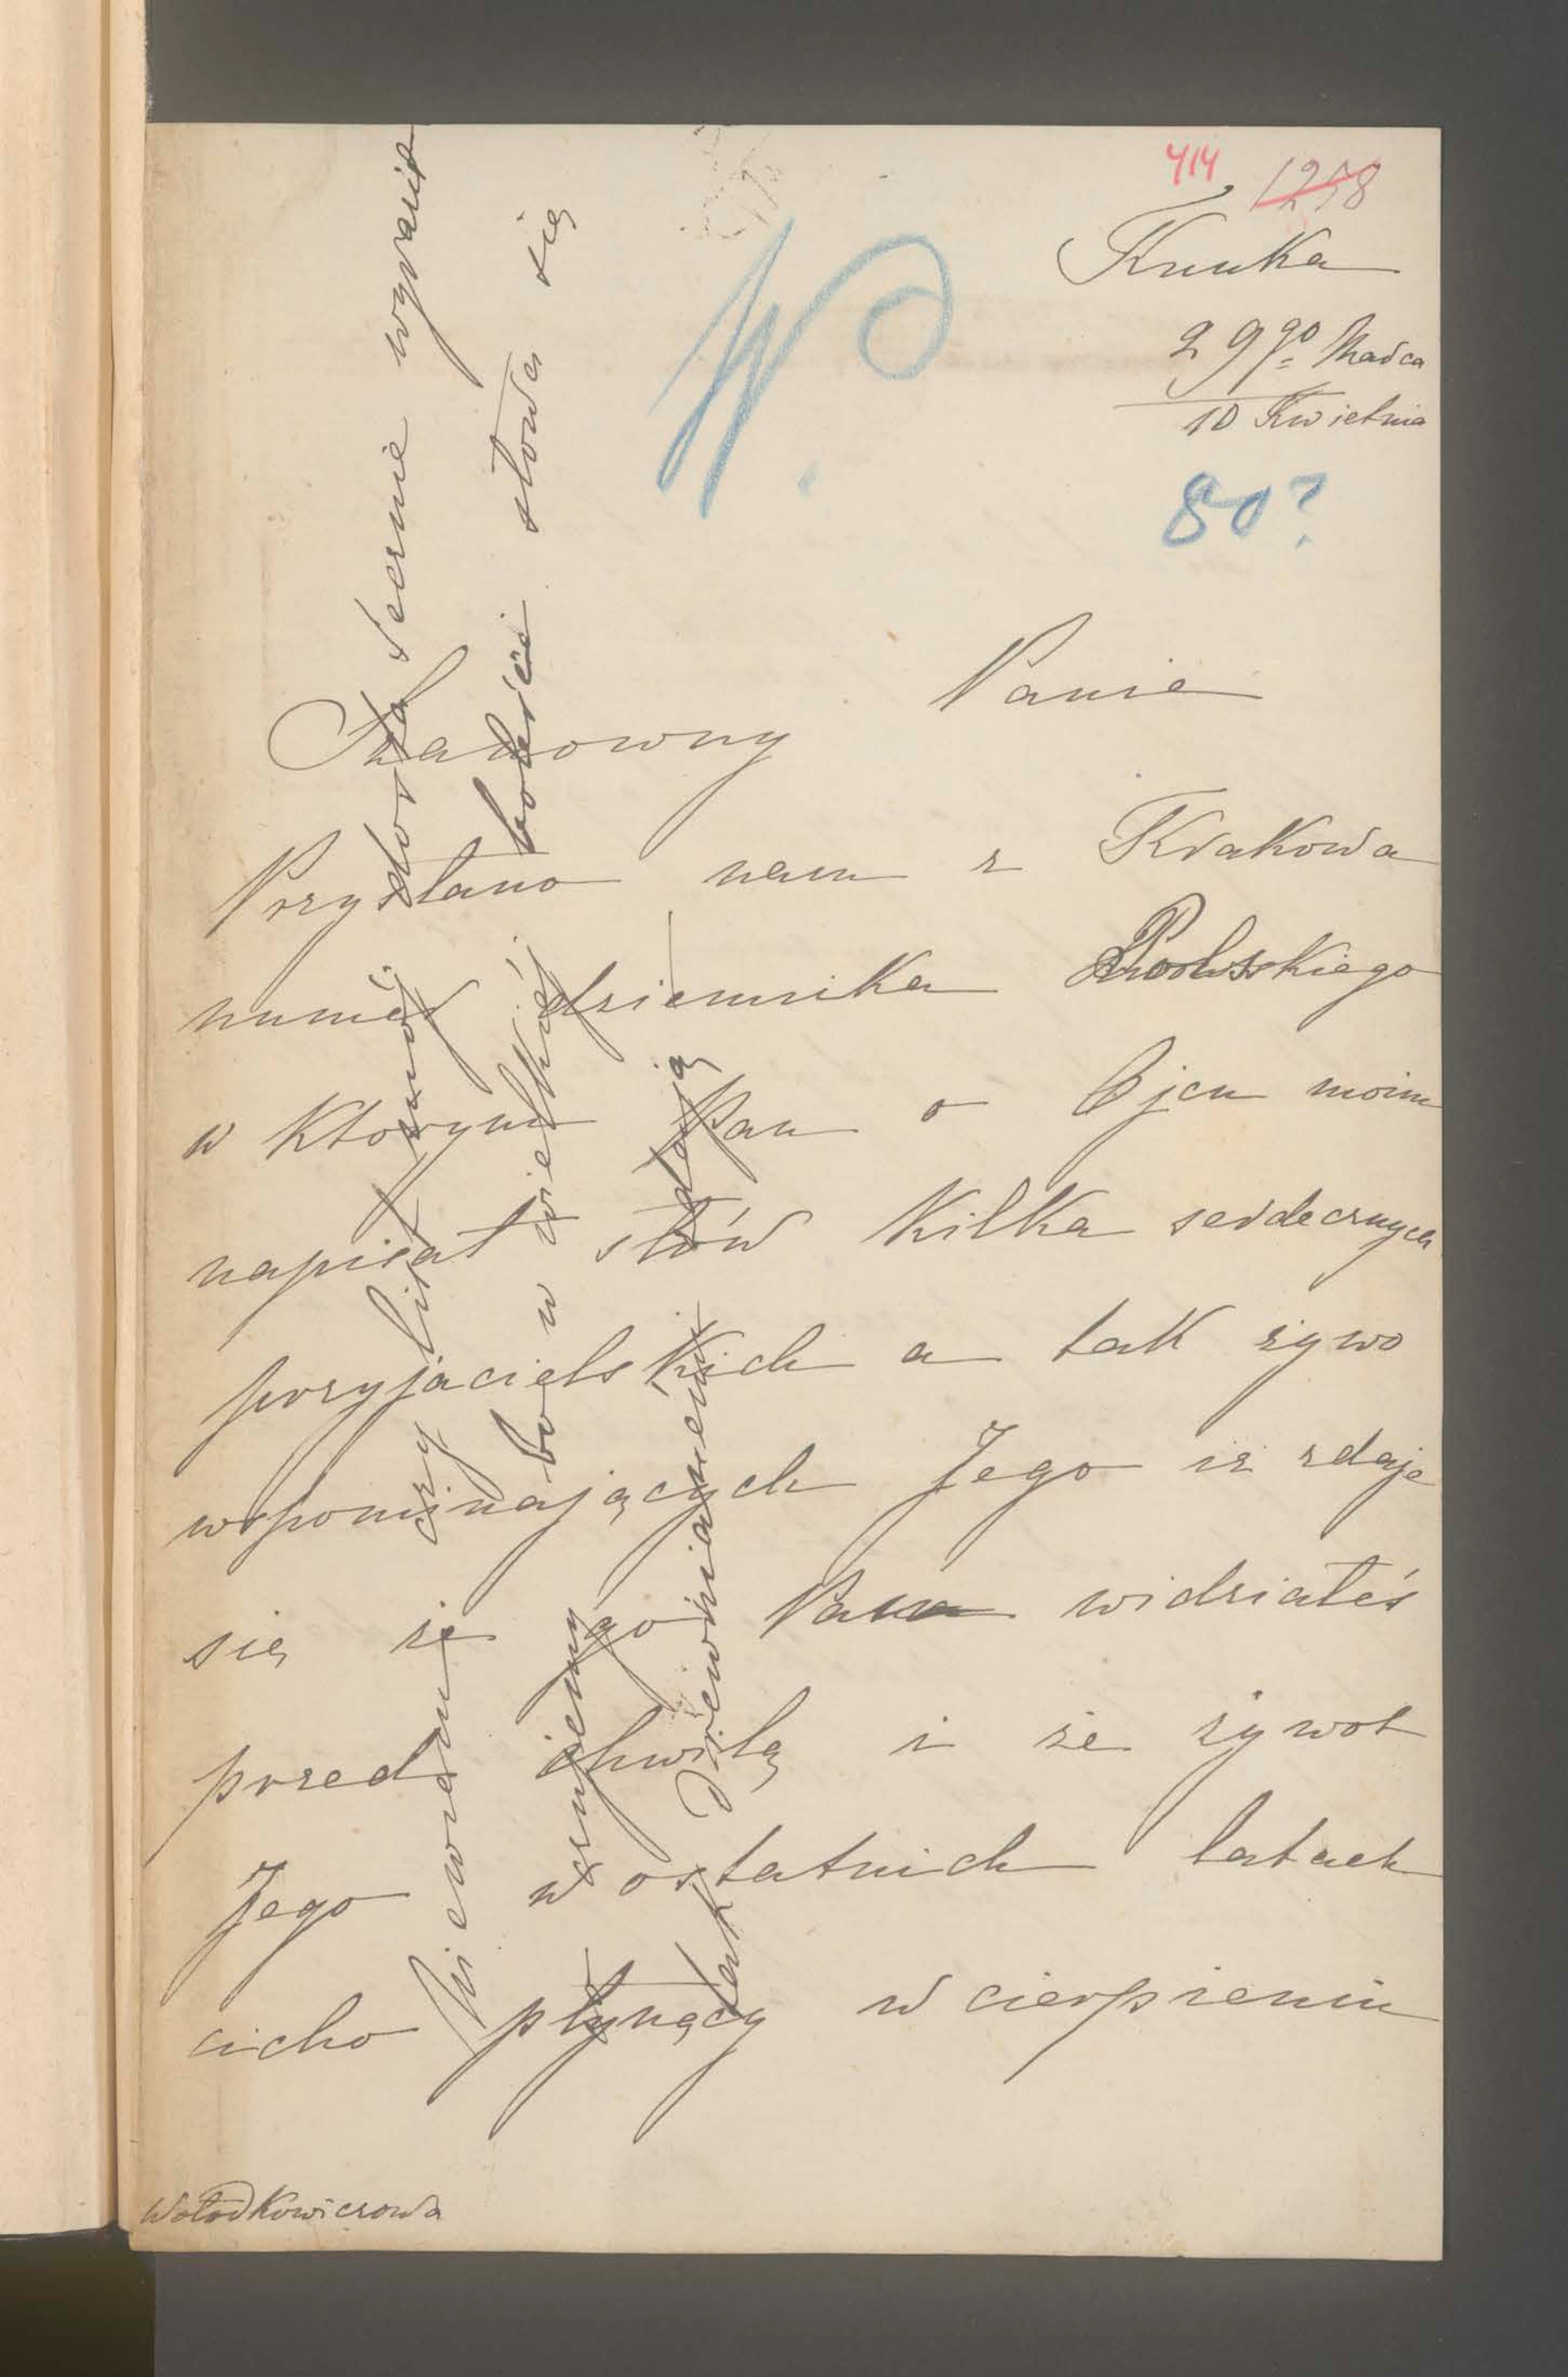 414 1258
Kruka
29go Marca
10 Kwietnia
W.
80?
Szanowny Panie
Przysłano nam z Krakowa
numer dziennika Polskiego
w ktorym Pan o Ojcu moim
napisał słów kilka serdecznych
przyjacielskich a tak żywo
wspominających Jego iż zdaje
się że go Pan widziałeś
przed chwilą i że żywot
Jego w ostatnich latach
cicho płynący w cierpieniu
Niewiem że czy list mój
dość serdecznie wyrazi
czujemy bo w wielkiéj
boleści słowa się
tak zdają
Wołodkowiczowa